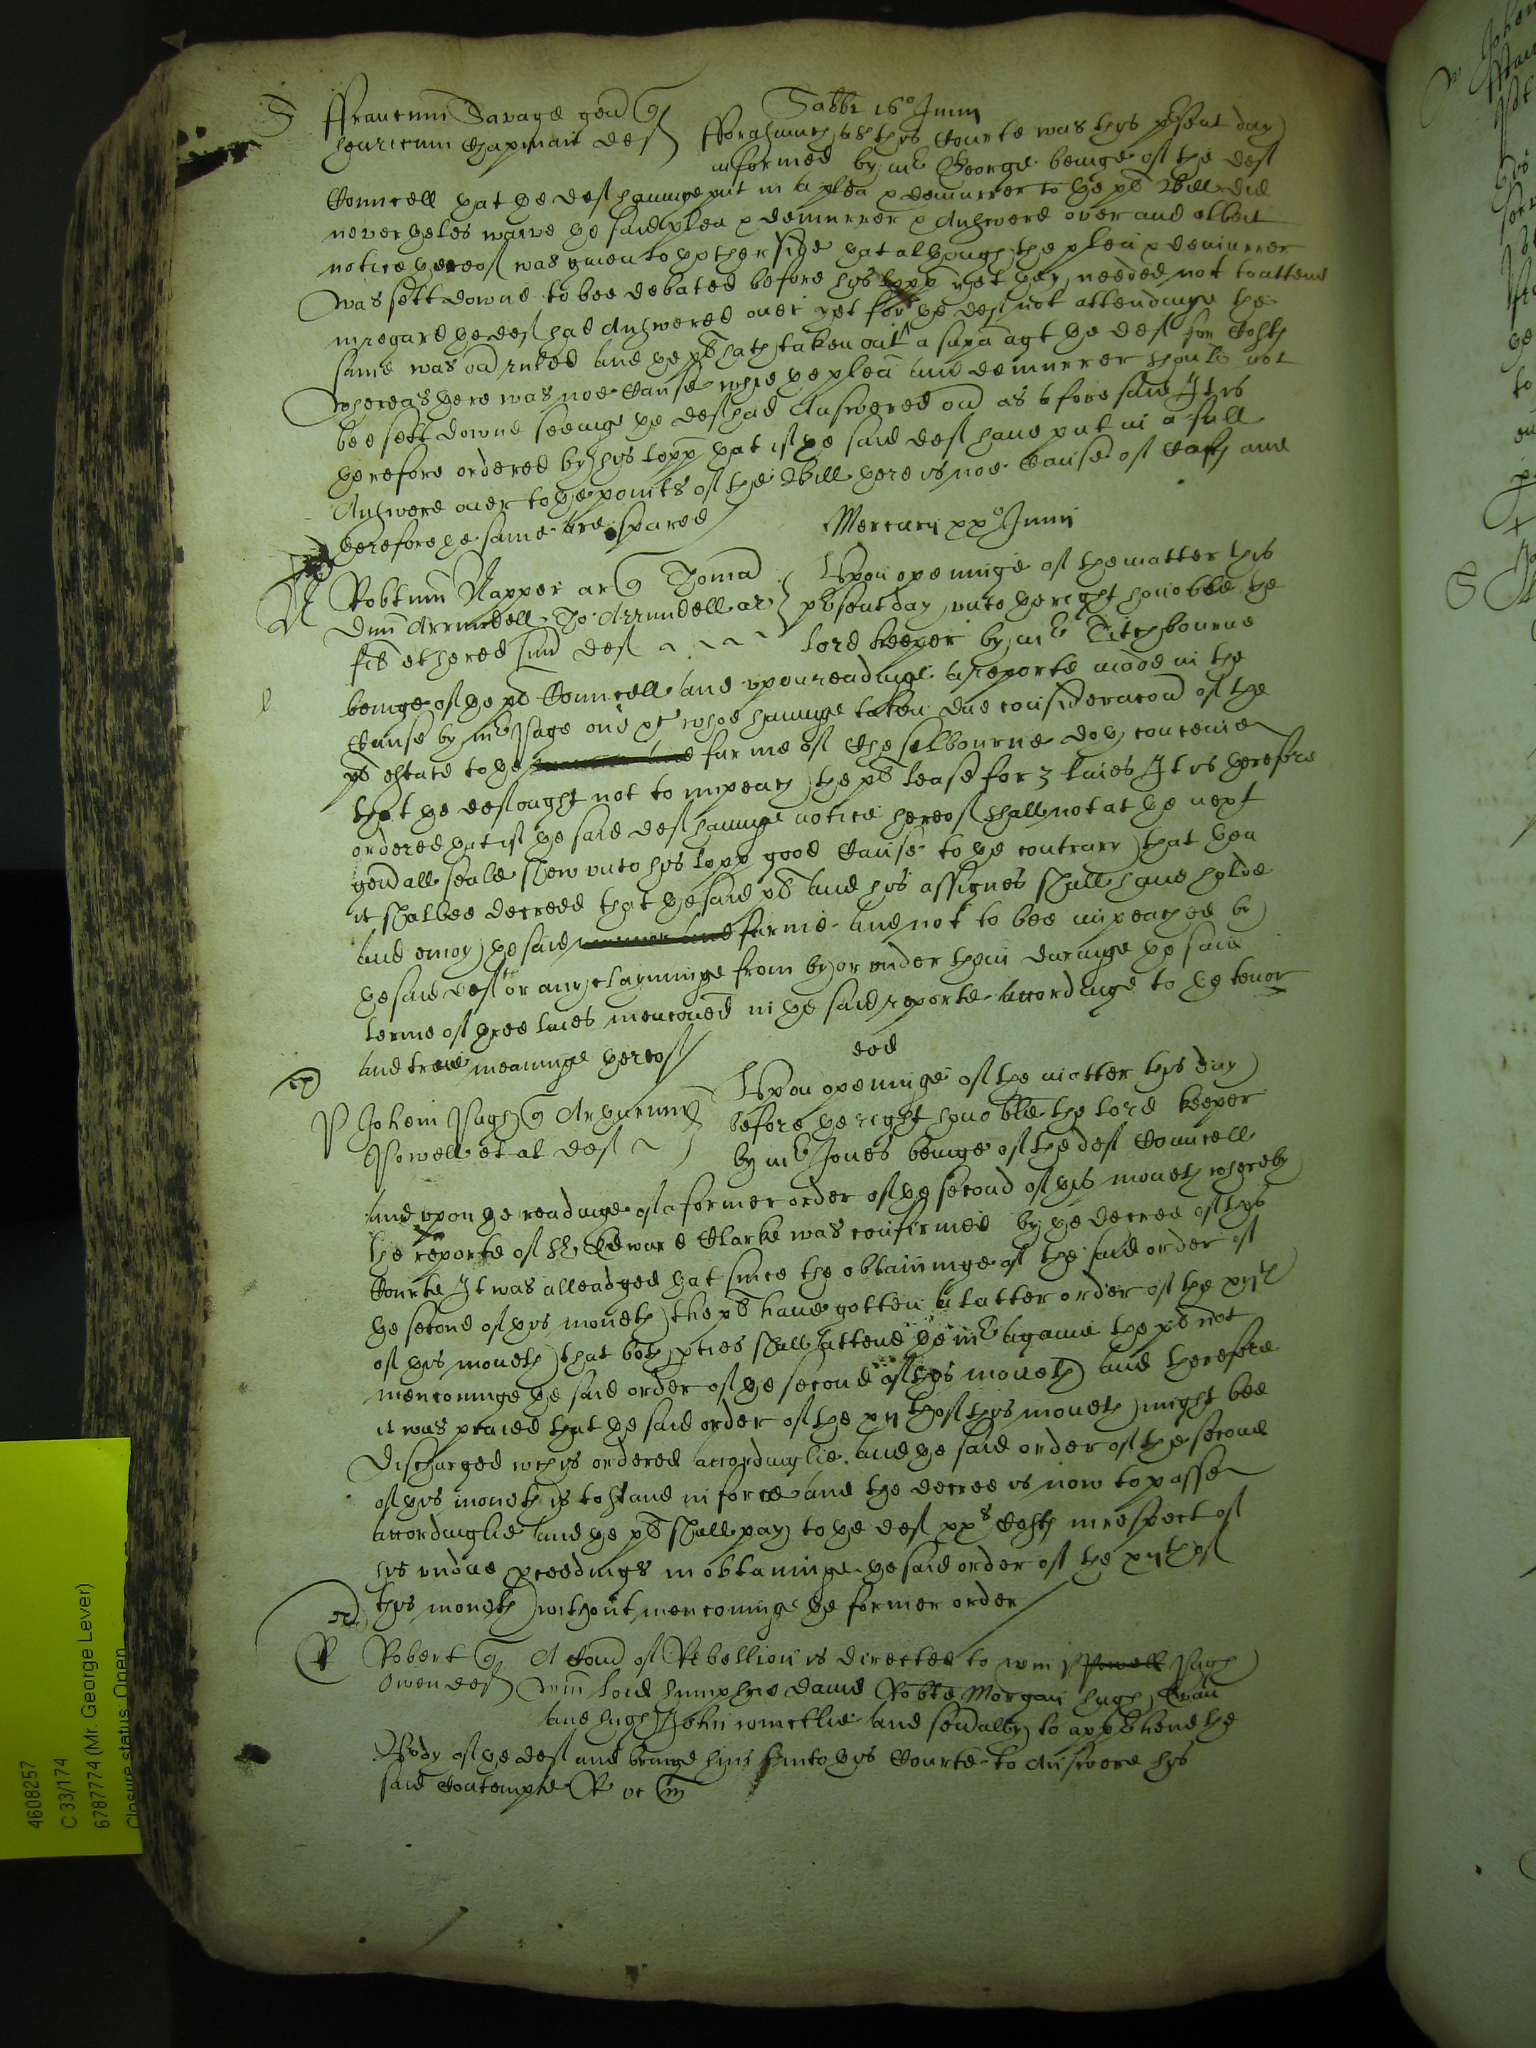 S
ffrancum Savage gen q
henricum Chapman def
Sabbi 16º Junij
fforasmuch as this Courte was this psent day
informed by mr George beinge of the def
Councell yat ye def havinge put in a plea & demurrer to ye pl Bill did
neverheles waive ye said plea & demurrer & Answere over and albeit
notice hereof was given to ye other side yat although the plea & demurrer
was sett downe to bee debated before his lopp yet they needed not to attend
in regard ye def had Answered over yet for ye def not attendinge the
same was ou ruled and ye pl hath taken out a supa agt ye def for Costs
whereas there was noe Cause whie ye plea and demurrer should not
bee sett downe seeinge ye def had Answered ou as aforesaid It is
yerefore ordered by his lopp yat if ye said def have put in a full
Answere over to ye points of the Bill yere is noe Cause of Costs and
yerefore ye same are spared
Mercurij xxº Junij
N
Robtum Napper ar q Thoma
Dnm Arrundell Jo: Arrundell ar
fil et hered sum def
Upon openinge of the matter this
psent day unto ye right honoble the
lord keeper by mr Titchbourne
beinge of ye pl Councell and upon readinge a reporte made in the
Cause by mr Page one &c whoe havinge taken due consideracon of the
pl estate to ye farme of Cheselbourne doth conceive
that ye def ought not to impeach the pl lease for 3 lives It is yerefore
ordered yat if ye said def havinge notice hereof shall not at ye next
genall seale shew unto his lopp good Cause to ye contrary that then
it shalbee decreed that ye said pl and his assignes shall have holde
and enioy ye said farme and not to bee impeached by
ye said def or any clayminge from by or under them duringe ye said
terme of three lives mencoued in ye said reporte accordinge to ye tenor
and trew meaninge hereof
eod
P
Johem Pugh q Arthurum
Powell et al def
Upon openinge of the matter this day
before ye right honoble the lord keeper
by mr Jones beinge of the def Councell
and upon ye readinge of a former order of ye second of this moneth whereby
the reporte of Sr Edward Clarke was confirmed by ye decree of this
Courte It was alleadged yat since the obtaininge of the said order of
ye second of this moneth the pl have gotten a latter order of the xijth
of this moneth that both pties shall attend ye mr againe the pl not
menconinge ye said order of ye second of this moneth and therefore
it was praied that ye said order of the xijth of this moneth might bee
discharged wch is ordered accordinglie and ye said order of the second
of this moneth is to stand in force and the decree is now to passe
accordinglie and ye pl shall pay to ye def xxs Costs in respect of
his undue pceedings in obtaininge ye said order of the xijth of
this moneth without menconinge ye former order
R
Robert q
Owen def
A Com of Rebellion is directed to Wm Powell Pugh
Wm loid humphrie david Robte Morgan hugh Evan
and hugh John ioinctlie and seually to appehend the
Body of ye def and bringe him into this Courte to Answere his
said Contempte R
4608257
C 33/174
6787774 (Mr. George Lever)
Closure status Open